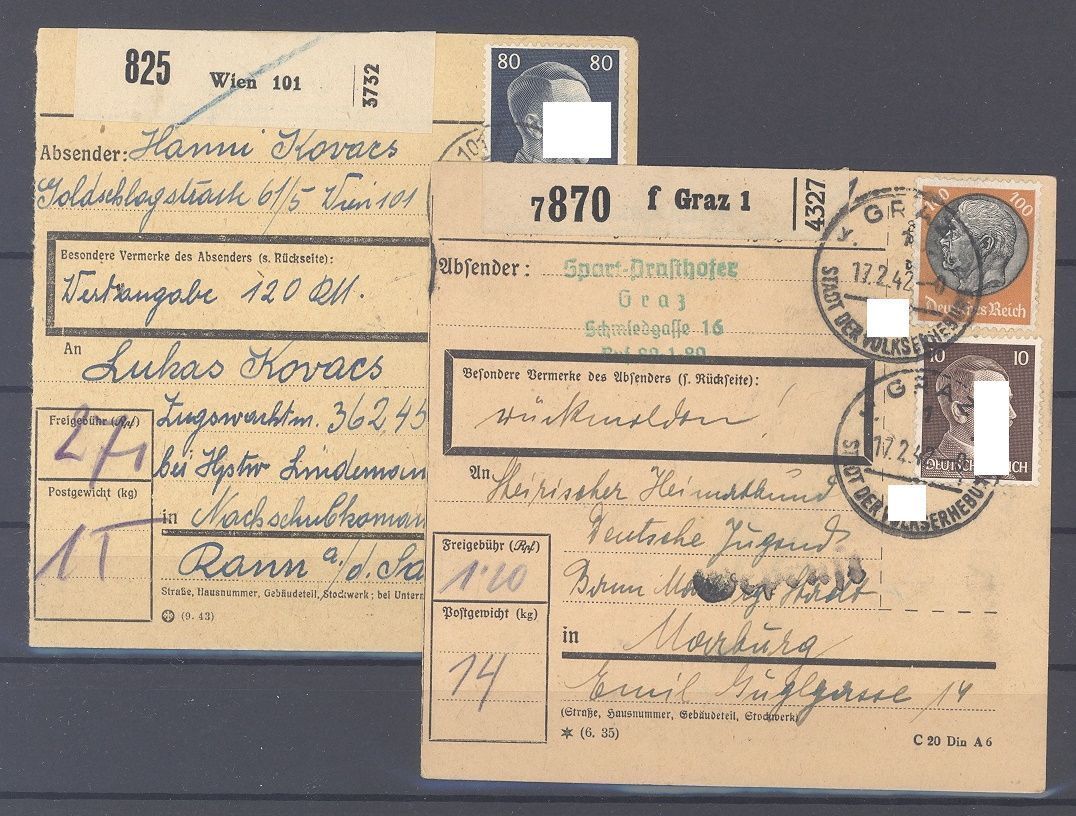 825
Wien 101
3732
80 80
101
Absender: Hanni Kovacs
Goldschlagstrasse 61/5 Wien 101
Besondere Vermerke des Absenders (s. Rückseite):
Wertangabe 120 RM.
An
Lukas Kovacs
Zugswachtm. 362,45
bei Hptw Lindemann
in Nachschubkoman
Rann a./d. Sa
Freigebühr (Rpf)
271
Postgewicht (kg)
15
Straße, Hausnummer, Gebäudeteil, Stockwerk; bei Unterm
(9. 43)
7870 f Graz 1
4327
GRAZ
17.2.42
STADT DER VOLKSERHEBUNG
100 100
Deutsches Reich
Absender:
Sport-Prasthofer
Graz
Schmiedgasse 16
Ruf 82-1-80
10 10
DEUTSCHES REICH
GRAZ
1
17.2.42
STADT DER VOLKSERHEBUNG
Besondere Vermerke des Absenders (s. Rückseite):
rückmelden!
An Steirischer Heimatbund
Deutsche Jugend
Bann Marburg Stadt
in Marburg
Emil Guglgasse 14
Freigebühr (Rpf)
1·20
Postgewicht (kg)
14
(Straße, Hausnummer, Gebäudeteil, Stockwerk)
(6. 35)
C 20 Din A 6